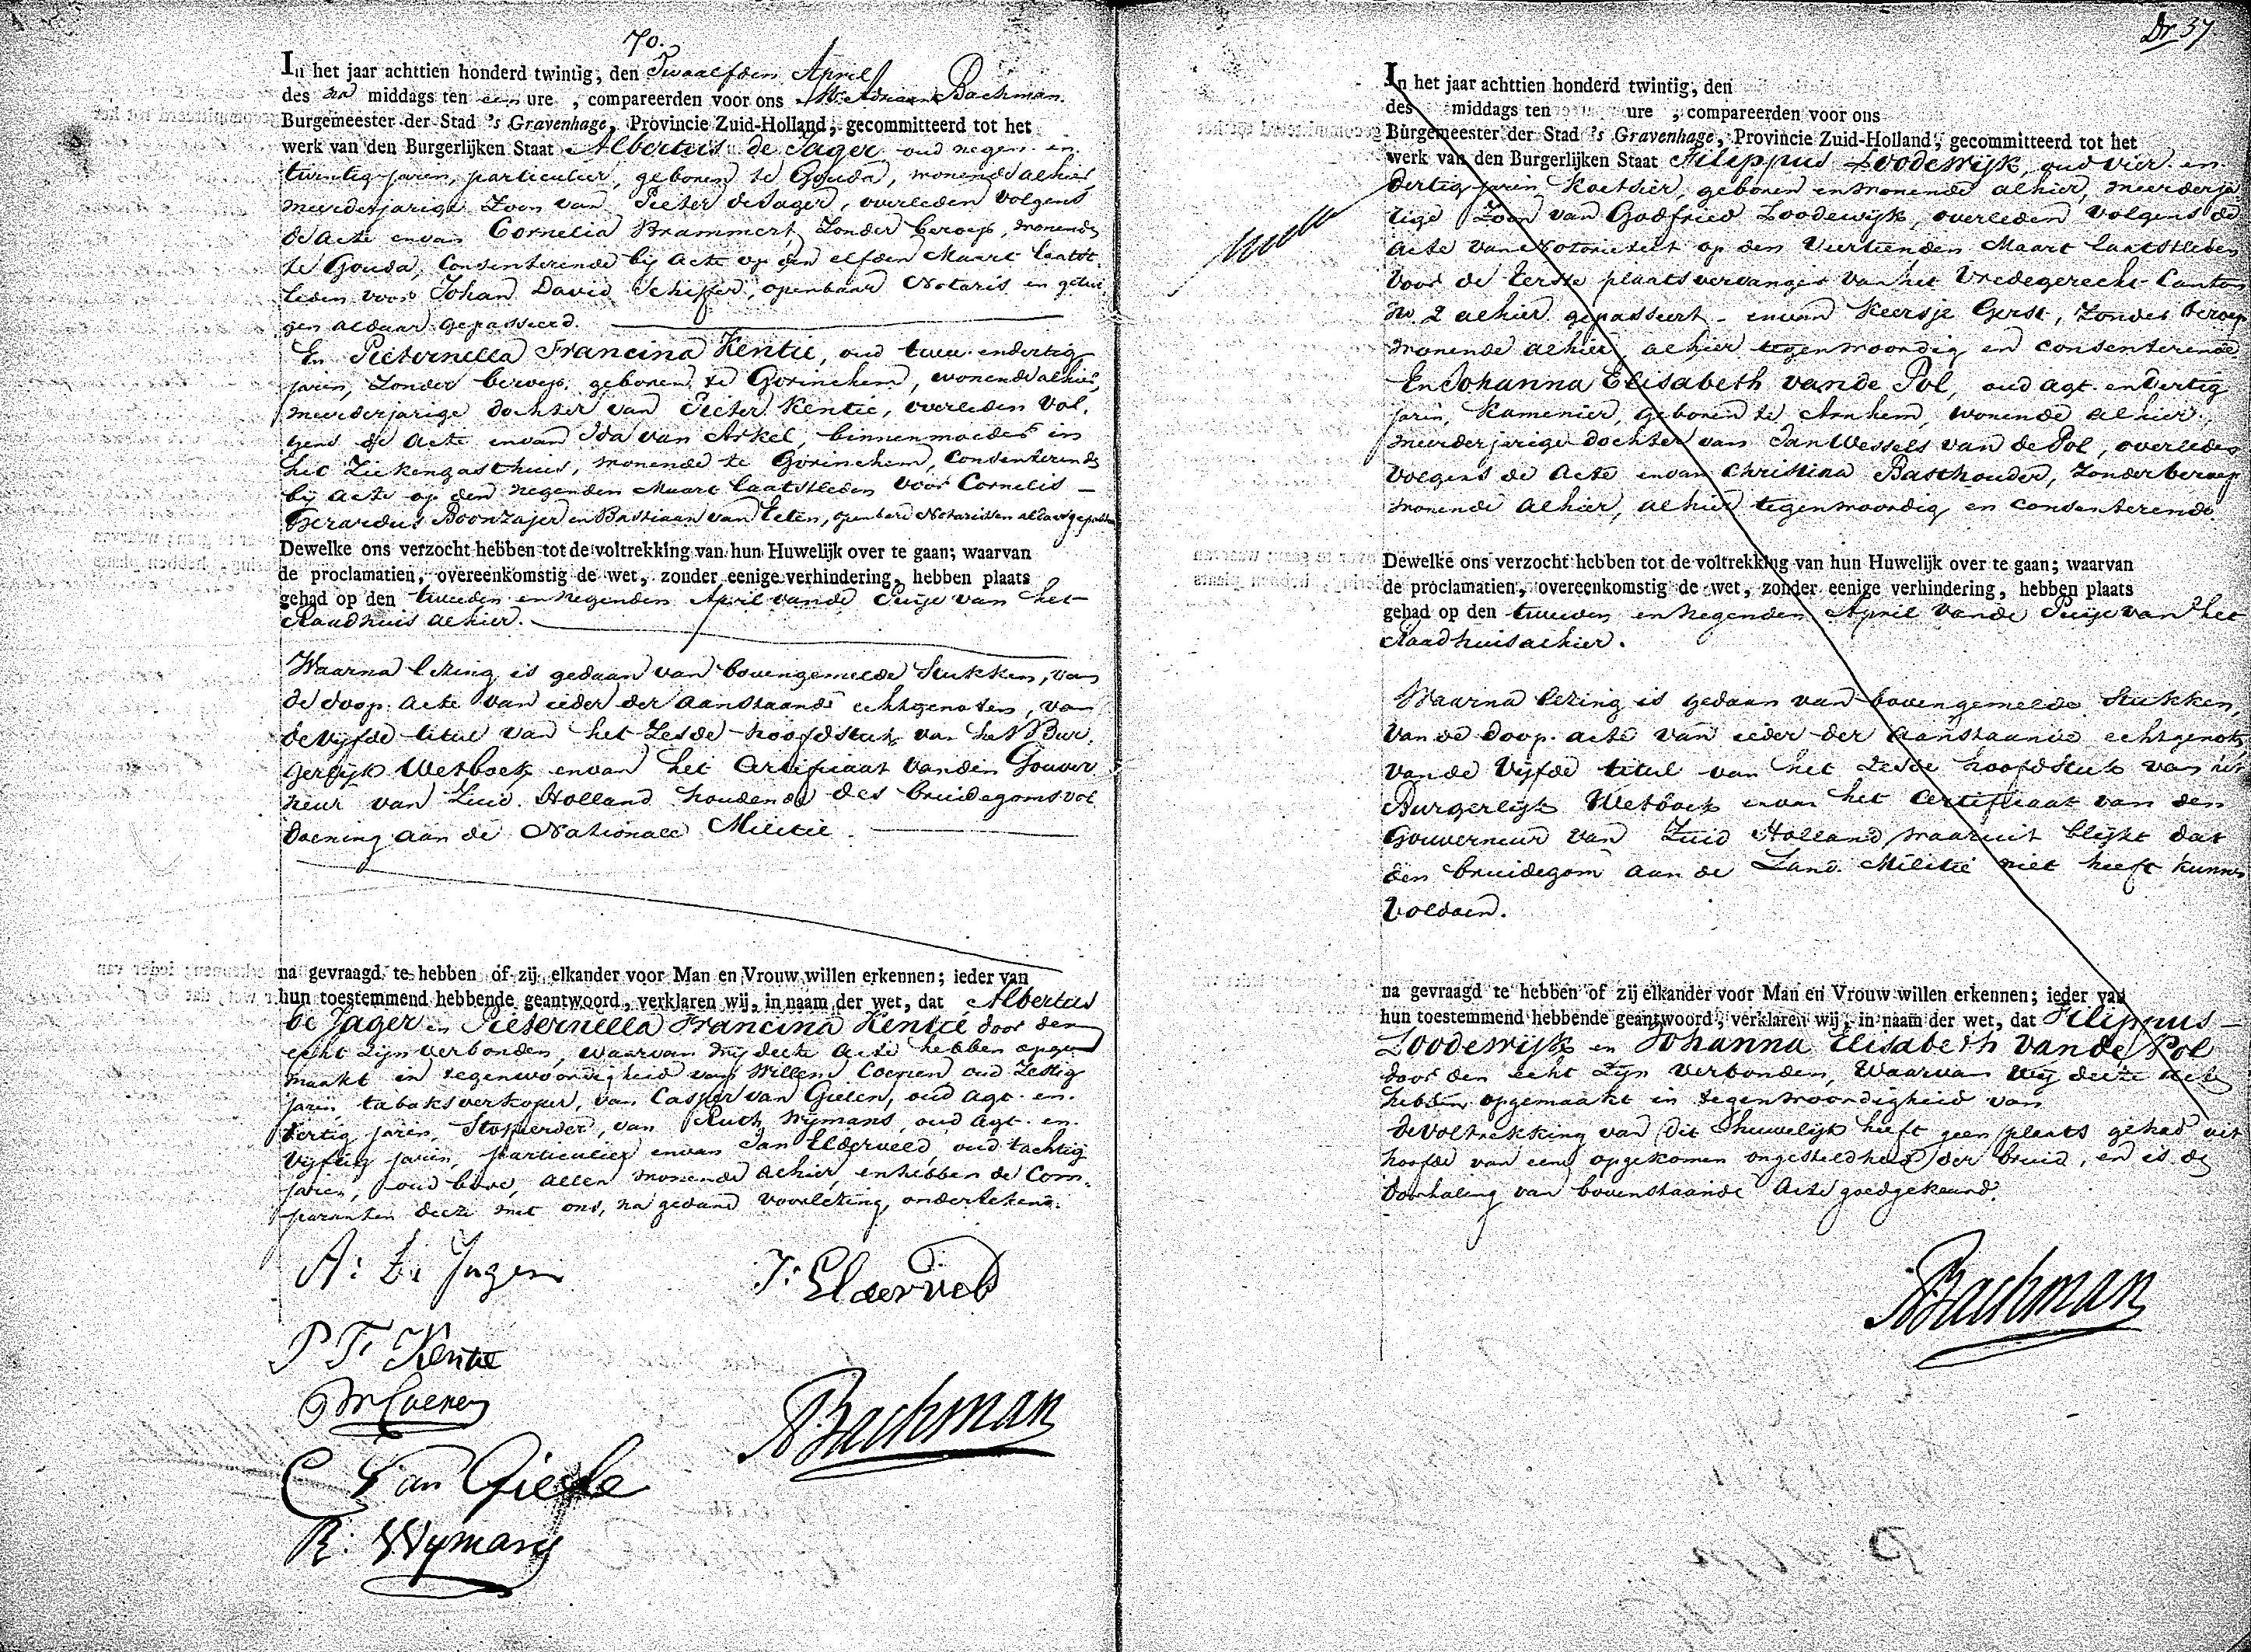 70.
In het jaar achttien honderd twintig, den Twaalfden April
des na middags ten een ure , compareerden voor ons Mr Adriaan Bachman
Burgemeester der Stad 's Gravenhage, Provincie Zuid-Holland, gecommitteerd tot het
werk van den Burgerlijken Staat Albertus de Jager oud negen en
twintig jaren, particulier, geboren te Gouda, wonende alhier
meerderjarige Zoon van Pieter de Jager, overleden volgens
de acte en van Cornelia Brammert, Zonder beroep, wonende
te Gouda, Consenterende bij acte op den elfden Maart laatst
leden voor Johan David Schiffer, openbaar Notaris en getui
gen aldaar gepasseerd.
En Pieternella Francina Kentie, oud twee en dertig
jaren, Zonder beroep, geboren te Gorinchem, wonende alhier,
meerderjarige dochter van Pieter Kentie, overleden vol,
gens de acte en van Ida van Arkel, binnenmoeder in
het Ziekengasthuis, wonende te Gorinchem, Consenterende
bij acte op den negenden Maart laatstleden voor Cornelis
Gerardus Boonzajer en Bastiaan van Eeten, openbare Notarissen aldaar
Dewelke ons verzocht hebben tot de voltrekking van hun Huwelijk over te gaan; waarvan
de proclamatien, overeenkomstig de wet, zonder eenige verhindering, hebben plaats
gehad op den tweeden en negenden April van de Puije van het
Raadhuis alhier.
Waarna lezing is gedaan van bovengemelde Stukken, van
de doop acte van ieder der aanstaande echtgenoten, van
de vijfde titul van het Zesde hoofdstuk van het Bur,
gerlijk Wetboek en van het Certificaat van den Gouver
neur van Zuid Holland houdende des bruidegoms vol
doening aan de Nationale Militie.
na gevraagd te hebben of zij elkander voor Man en Vrouw willen erkennen; ieder van
hun toestemmend hebbende geantwoord, verklaren wij, in naam der wet, dat Albertus
de Jager en Pieternella Francina Kentie door den
echt zijn verbonden, waarvan wij deeze acte hebben opge
maakt in tegenwoordigheid van Willem Coenen oud Zestig
jaren, tabaksverkoper, van Casper van Gielen, oud agt en
dertig jaren, Stoffeerder, van Ruth Wijmans, oud agt en
vijftig jaren, particulier en van Jan Elderveld, oud tachtig
jaren, oud bode, allen wonende alhier, en hebben de Com,
paranten deeze met ons, na gedane voorlezing, onderteekend.
A: de Jager
J: Elderveld
P F Kentie
W Coenen
A Bachman
C Van Giele
R: Wymans
37.
In het jaar achttien honderd twintig, den
des middags ten ure , compareerden voor ons
Burgemeester der Stad 's Gravenhage, Provincie Zuid-Holland, gecommitteerd tot het
werk van den Burgerlijken Staat Filippus Loodewijk, oud vier en
dertig jaren, Koetsier, geboren en wonende alhier, meerderja
rige Zoon van Godfried Loodewijk, overleden volgens de
acte van Notorieteit op den Veertienden Maart laatstleden
voor de Eerste plaatsvervanger van het Vredegerecht Canton
No. 2 alhier gepasseert en van Keersje Gerst, Zonder beroep
wonende alhier, alhier tegenwoordig en consenterende
En Johanna Elisabeth van de Pol, oud agt en dertig
jaren, Kamenier, geboren te Arnhem, wonende alhier,
meerderjarige dochter van Jan Wessels van de Pol, overleden
volgens de acte en van Christina Basthouder, Zonder beroep
wonende alhier, alhier tegenwoordig en consenterende
Dewelke ons verzocht hebben tot de voltrekking van hun Huwelijk over te gaan; waarvan
de proclamatien, overeenkomstig de wet, zonder eenige verhindering, hebben plaats
gehad op den tweeden en negenden April van de Puije van het
Raadhuis alhier.
Waarna lezing is gedaan van bovengemelde Stukken,
van de doop acte van ieder der aanstaande echtgenoten,
van de vijfde titul van het Zesde hoofdstuk van het
Burgerlijk Wetboek en van het Certificaat van den
Gouverneur van Zuid Holland, waaruit blijkt dat
den bruidegom aan de Land Militie niet heeft kunnen
voldoen.
na gevraagd te hebben of zij elkander voor Man en Vrouw willen erkennen; ieder van
hun toestemmend hebbende geantwoord, verklaren wij, in naam der wet, dat Filippus
Loodewijk en Johanna Elisabeth van de Pol
door den echt zijn verbonden, Waarvan wij deeze acte
hebben opgemaakt in tegenwoordigheid van
De voltrekking van dit huwelijk heeft geen plaats gehad uit
hoofde van eene opgekomen ongesteldheid der bruid, en is de
doorhaling van bovenstaande Acte goedgekeurd.
A Bachman